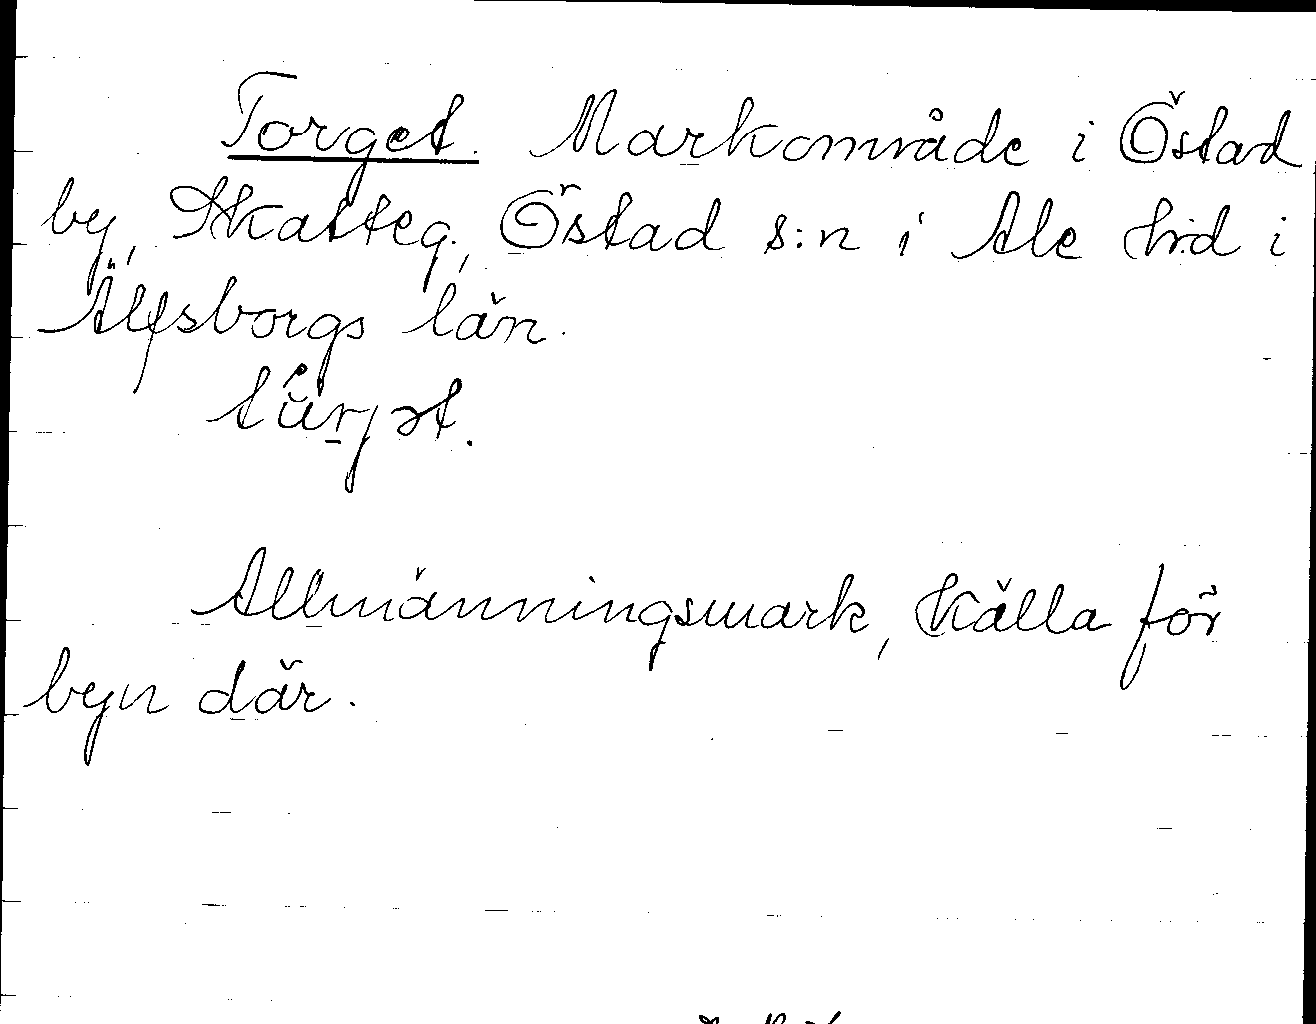 Torget. Markområde i Östad
by, Skatteg, Östad s:n i Ale hd i
Älfsborgs län.
Allmänningsmark, källa för
byn där.